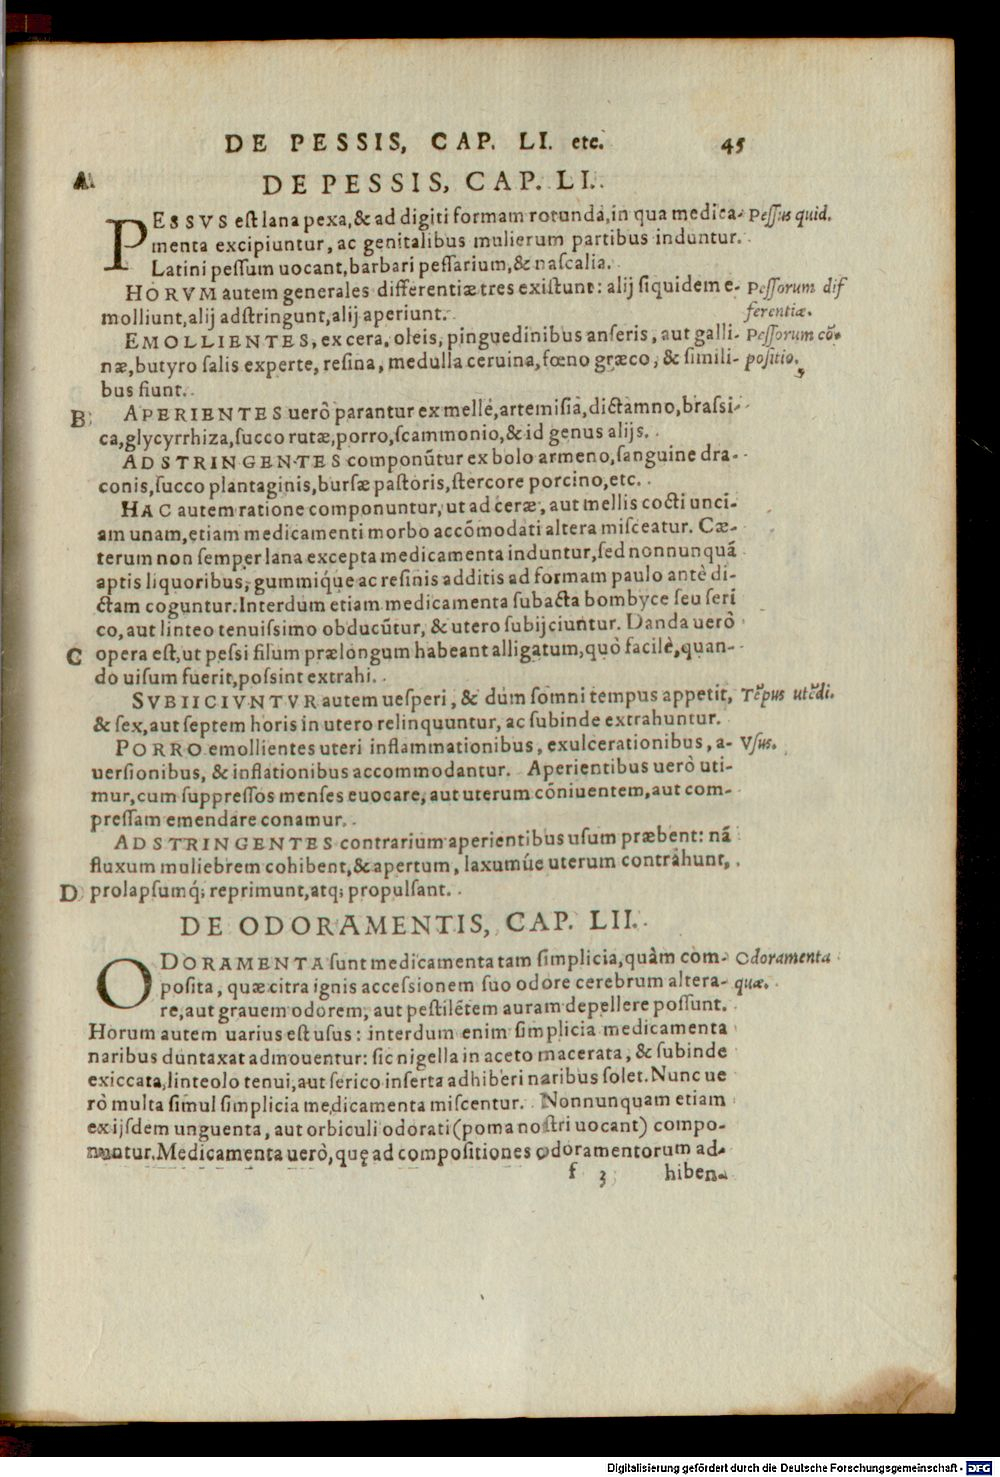 DE PESSIS, CAP. LI. etc. 45
A DE PESSIS, CAP. LI.
PESSVS est lana pexa, & ad digiti formam rotundā, in qua medica- Pessus quid.
menta excipiuntur, ac genitalibus mulierum partibus induntur.
Latini pessum uocant, barbari pessarium, & nascalia.
HORVM autem generales differentiæ tres existunt: alij siquidem e- Pessorum dif
molliunt, alij adstringunt, alij aperiunt. ferentiæ.
EMOLLIENTES, ex cera, oleis, pinguedinibus anseris, aut galli- Pessorum cō-
næ, butyro salis experte, resina, medulla ceruina, fœno græco, & simili- positio.
bus fiunt.
B APERIENTES uerò parantur ex melle, artemisia, dictamno, brassi-
ca, glycyrrhiza, succo rutæ, porro, scammonio, & id genus alijs.
ADSTRINGENTES componūtur ex bolo armeno, sanguine dra-
conis, succo plantaginis, bursæ pastoris, stercore porcino, etc.
HAC autem ratione componuntur, ut ad ceræ, aut mellis cocti unci-
am unam, etiam medicamenti morbo accōmodati altera misceatur. Cæ-
terum non semper lana excepta medicamenta induntur, sed nonnunquā
aptis liquoribus, gummiq́ue ac resinis additis ad formam paulo antè di-
ctam coguntur. Interdum etiam medicamenta subacta bombyce seu seri
co, aut linteo tenuissimo obducūtur, & utero subijciuntur. Danda uerò
C opera est, ut pessi filum prælongum habeant alligatum, quò facilè, quan-
do uisum fuerit, possint extrahi.
SVBIICIVNTVR autem uesperi, & dum somni tempus appetit, Tēpus utēdi.
& sex, aut septem horis in utero relinquuntur, ac subinde extrahuntur.
PORRO emollientes uteri inflammationibus, exulcerationibus, a- Vsus.
uersionibus, & inflationibus accommodantur. Aperientibus uerò uti-
mur, cum suppressos menses euocare, aut uterum cōniuentem, aut com-
pressam emendare conamur.
ADSTRINGENTES contrarium aperientibus usum præbent: nā
fluxum muliebrem cohibent, & apertum, laxumúe uterum contrahunt,
D prolapsumq́; reprimunt, atq; propulsant.
DE ODORAMENTIS, CAP. LII.
ODORAMENTA sunt medicamenta tam simplicia, quàm com- Odoramenta
posita, quæ citra ignis accessionem suo odore cerebrum altera- quæ.
re, aut grauem odorem, aut pestilētem auram depellere possunt.
Horum autem uarius est usus: interdum enim simplicia medicamenta
naribus duntaxat admouentur: sic nigella in aceto macerata, & subinde
exiccata, linteolo tenui, aut serico inserta adhiberi naribus solet. Nunc ue
rò multa simul simplicia medicamenta miscentur. Nonnunquam etiam
ex ijsdem unguenta, aut orbiculi odorati (poma nostri uocant) compo-
nuntur. Medicamenta uerò, quę ad compositiones odoramentorum ad-
f 3 hiben-
Digitalisierung gefördert durch die Deutsche Forschungsgemeinschaft - DFG